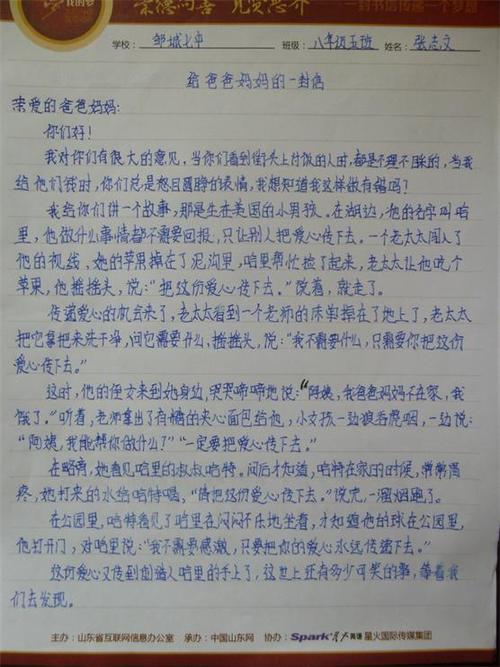 崇德向善 见贤思齐
一封书信传递一个梦想
学校: 邹城七中 班级: 八年级五班 姓名: 张志文
给爸爸妈妈的一封信
亲爱的爸爸妈妈:
你们好!
我对你们有很大的意见,当你们看到街头上行饭的人时,都是不理不睬的,当我
给他们钱时,你们总是怒目圆睁的表情,我想知道我这样做有错吗?
我给你们讲一个故事,那是生在美国的小男孩。在湖边,他的名字叫哈
里,他做什么事情都不需要回报,只让别人把爱心传下去。一个老太太闯入了
他的视线,她的苹果掉在了泥沟里,哈里帮忙捡了起来,老太太让他吃个
苹果,他摇摇头,说:“把这份爱心传下去。”说着,就走了。
传递爱心的机会来了,老太太看到一个老师的床单掉在了地上了,老太太
把它拿把来洗干净,问它需要什么,摇摇头,说:“我不需要什么,只需要你把这份
爱心传下去。”
这时,他的侄女来到她身边,哭哭啼啼地说:“阿姨,我爸爸妈妈不在家,我
饿了。”听着,老师拿出了有糖的夹心面包给他,小女孩一边狼吞虎咽,一边说:
“阿姨,我能帮你做什么?”“一定要把爱心传下去。”
在路旁,她看见哈里的叔叔哈特。问后才知道,哈特在家的时候,常常胃
疼,她打来的水给哈特喝,“请把这份爱心传下去。”说完,一溜烟跑了。
在公园里,哈特看见了哈里在闷闷不乐地坐着,才知道他的球在公园里,
他打开门,对哈里说:“我不需要感激,只要把你的爱心永远传递下去。”
这份爱心又传到创造人哈里的手上了,这世上还有多少可笑的事,等着我
们去发现。
主办:山东省互联网信息办公室 承办:中国山东网 协办:Spark 星火英语 星火国际传媒集团